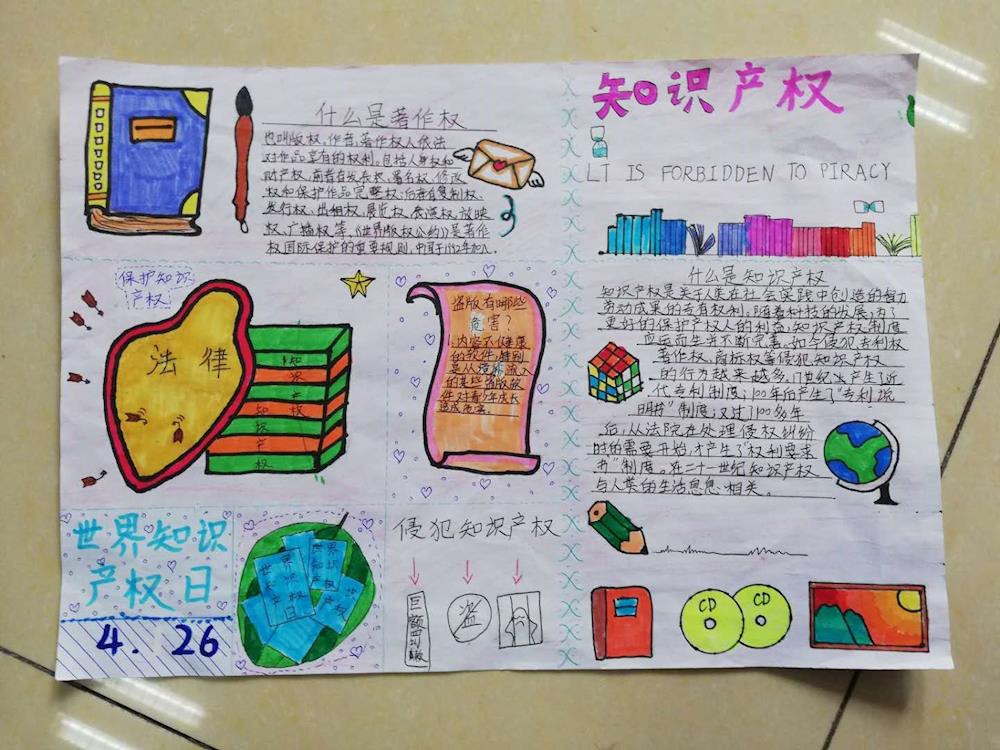 知识产权
LT IS FORBIDDEN TO PIRACY
什么是著作权
也叫版权,作者,著作权人依法
对作品享有的权利。包括人身权和
财产权,前者有发表权、署名权、修改
权和保护作品完整权;后者有复制权、
发行权、出租权、展览权、表演权、放映
权、广播权等,《世界版权公约》是著作
权国际保护的重要规则,中国于1992年加入。
保护知识
产权
法律
知
识
产
知 权
识
产
权
盗版有哪些
危害?
内容不健康
的软件,特别
是从境外流入
的某些盗版软
件对青少年成长
造成危害。
什么是知识产权
知识产权是关于人类在社会实践中创造的智力
劳动成果的专有权利。随着科技的发展,为了
更好的保护产权人的利益,知识产权制度
应运而生并不断完善。如今侵犯专利权
著作权、商标权等侵犯知识产权
的行为越来越多。17世纪上产生了近
代专利制度;100年后产生了“专利说
明书”制度;又过了100多年
后,从法院在处理侵权纠纷
时的需要开始,才产生了“权利要求
书”制度。在二十一世纪知识产权
与人类的生活息息相关。
世界知识
产权日
4.26
世界知识产权日
世界知识产权
产权
侵犯知识产权
巨额罚款
盗
CD
CD